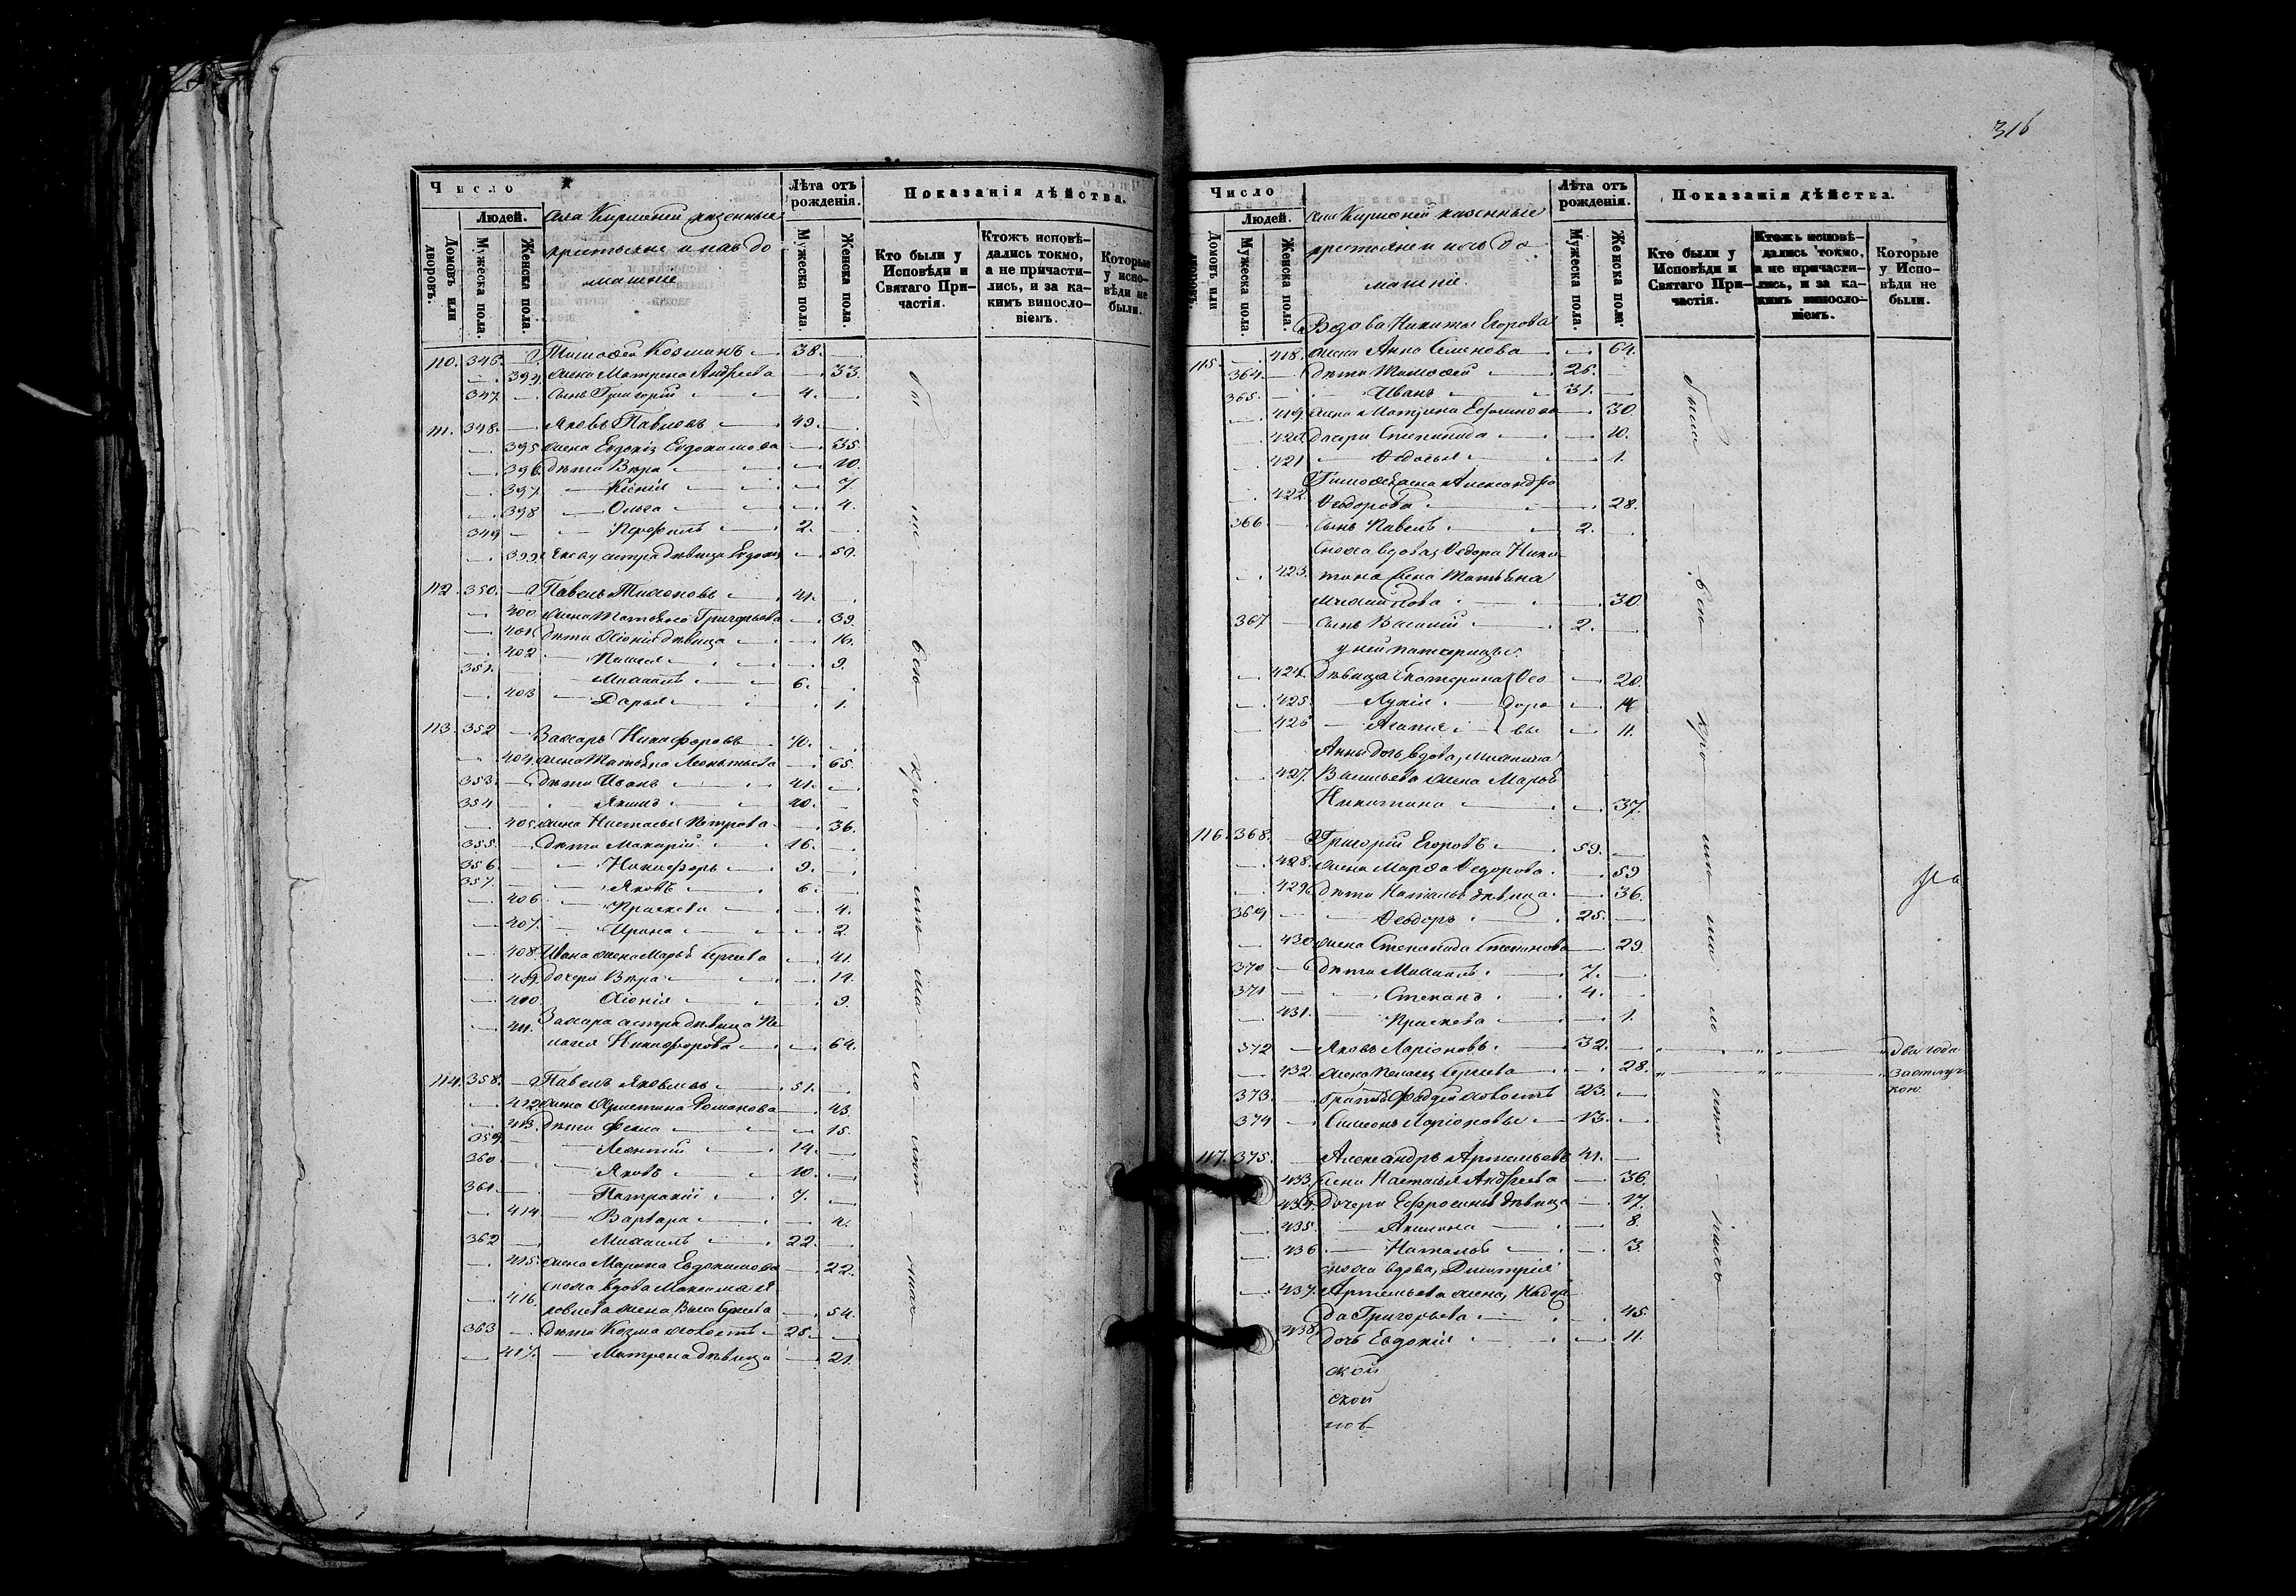 Число
Людей.
Домовъ или дворовъ.
Мужеска пола.
Женска пола.
села казенные
крестьяне и ихъ до
машніе
Лѣта отъ рожденія.
Мужеска пола.
Женска пола.
Показанія дѣйства.
Кто были у Исповѣди и Святаго Причастія.
Ктожъ исповѣдались токмо, а не причастились, и за какимъ винословіемъ.
Которые у исповѣди не были.
110. 346. — Тимофей Козминъ — 38. —
— 394. жена Матрена Андреева — 33.
347. — сынъ Григорій — 4. —
111. 348. — Яковъ Павловъ — 49. —
— 395 жена Евдокія Евдокимова — 35
— 396. дѣти Вѣра — 10.
— 397. — Ксенія — 7.
— 398 — Ольга — 4.
349 — 2. —
— 399. сестра дѣвица — 50.
112. 350. — Павелъ Тихоновъ — 41. —
— 400 жена Татьяна Григорьева — 39.
— 401 дѣти Хіонія дѣвица — 16.
— 402 — 9.
351. — Михаилъ — 6. —
— 403 — Дарья — 1.
113. 352 — Захаръ Никифоровъ — 70. —
— 404. жена Татьяна Леонтьева — 65.
353. — дѣти Иванъ — 41. —
354 — Якимъ — 40. —
— 405. жена Настасья Петрова — 36.
355. — дѣти Макарій — 16. —
356. — Никифоръ — 9. —
357. — Яковъ — 6. —
— 406 — Праскева — 4.
— 407. — Ирина — 2.
— 408. Ивана жена Марья Сергеева — 41.
— 409. дочери Вѣра — 14.
— 410. Хіонія — 9.
— 411. Захара сестра дѣвица Пе
лагея Никифорова — 64.
114. 358. — Павелъ Яковлевъ — 51. —
— 412. жена Христина Романова — 43.
— 413. дѣти Фекла — 15.
359. — Леонтій — 14. —
360. — Яковъ — 10. —
361. — Патрикій — 7. —
— 414. — Варвара — 4.
362 — Михаилъ — 22. —
— 415. жена Марина Евдокимова — 22.
сноха вдова Максима Я
— 416. ковлева жена Васса Сергеева — 54.
363 — дѣти Козма холостъ — 25. —
— 417. — Матрена дѣвица — 21.
316
Число
Людей.
Домовъ или дворовъ.
Мужеска пола.
Женска пола.
села казенные
крестьяне и ихъ до
машніе.
Лѣта отъ рожденія.
Мужеска пола.
Женска пола.
Показанія дѣйства.
Кто были у Исповѣди и Святаго Причастія.
Ктожъ исповѣдались токмо, а не причастились, и за какимъ винословіемъ.
Которые у Исповѣди не были.
Вдова Никиты Егорова
115. — 418. жена Анна Семенова — 64.
364. — дѣти Тимофей — 26. —
365. — Иванъ — 31. —
— 419. жена Матрена Ефимова — 30.
— 420. дочери Степанида — 10.
— 421 — Федосья — 1.
Тимофея жена Александра
— 422. Феодорова — 28.
366 — сынъ Павелъ — 2. —
Сноха вдова, Федора Ники
— 423. тина жена Татьяна
Михайлова — 30.
367 — сынъ Василій — 2. —
у ней падчерицы:
— 424. дѣвица Екатерина Фео — 20.
— 425. — Лукія доро — 14
— 426 — Агапія вы — 11.
Анны дочь вдова, Михаила
— 427. Васильева жена Марья
Никитина — 37.
116. 368. — Григорій Егоровъ — 59. —
— 428. жена Марфа Федорова — 59
— 429. дѣти Наталья дѣвица — 36.
369 — Феодоръ — 25. —
— 430. жена Степанида Степанова — 29.
370 — дѣти Михаилъ — 7. —
371 — Степанъ — 4. —
— 431. — Праскева — 1.
372 — Яковъ Ларіоновъ — 32. — два года
— 432. жена Пелагея Сергеева — 28. за отлуч
кою
373. — братья Фадей холостъ 23. —
374 — Симеонъ Ларіоновы — 13. —
117. 375. — Александръ Артемьевъ 41. —
— 433. жена Настасья Андреева — 36.
— 434. дочери Ефросинья дѣвица — 17.
— 435. — Акилина — 8.
— 436 — Наталья — 3.
сноха вдова, Дмитрія
— 437. Артемьева жена, Надеж
да Григорьева — 45.
— 438. дочь Евдокія — 11.
ской
ской
нов